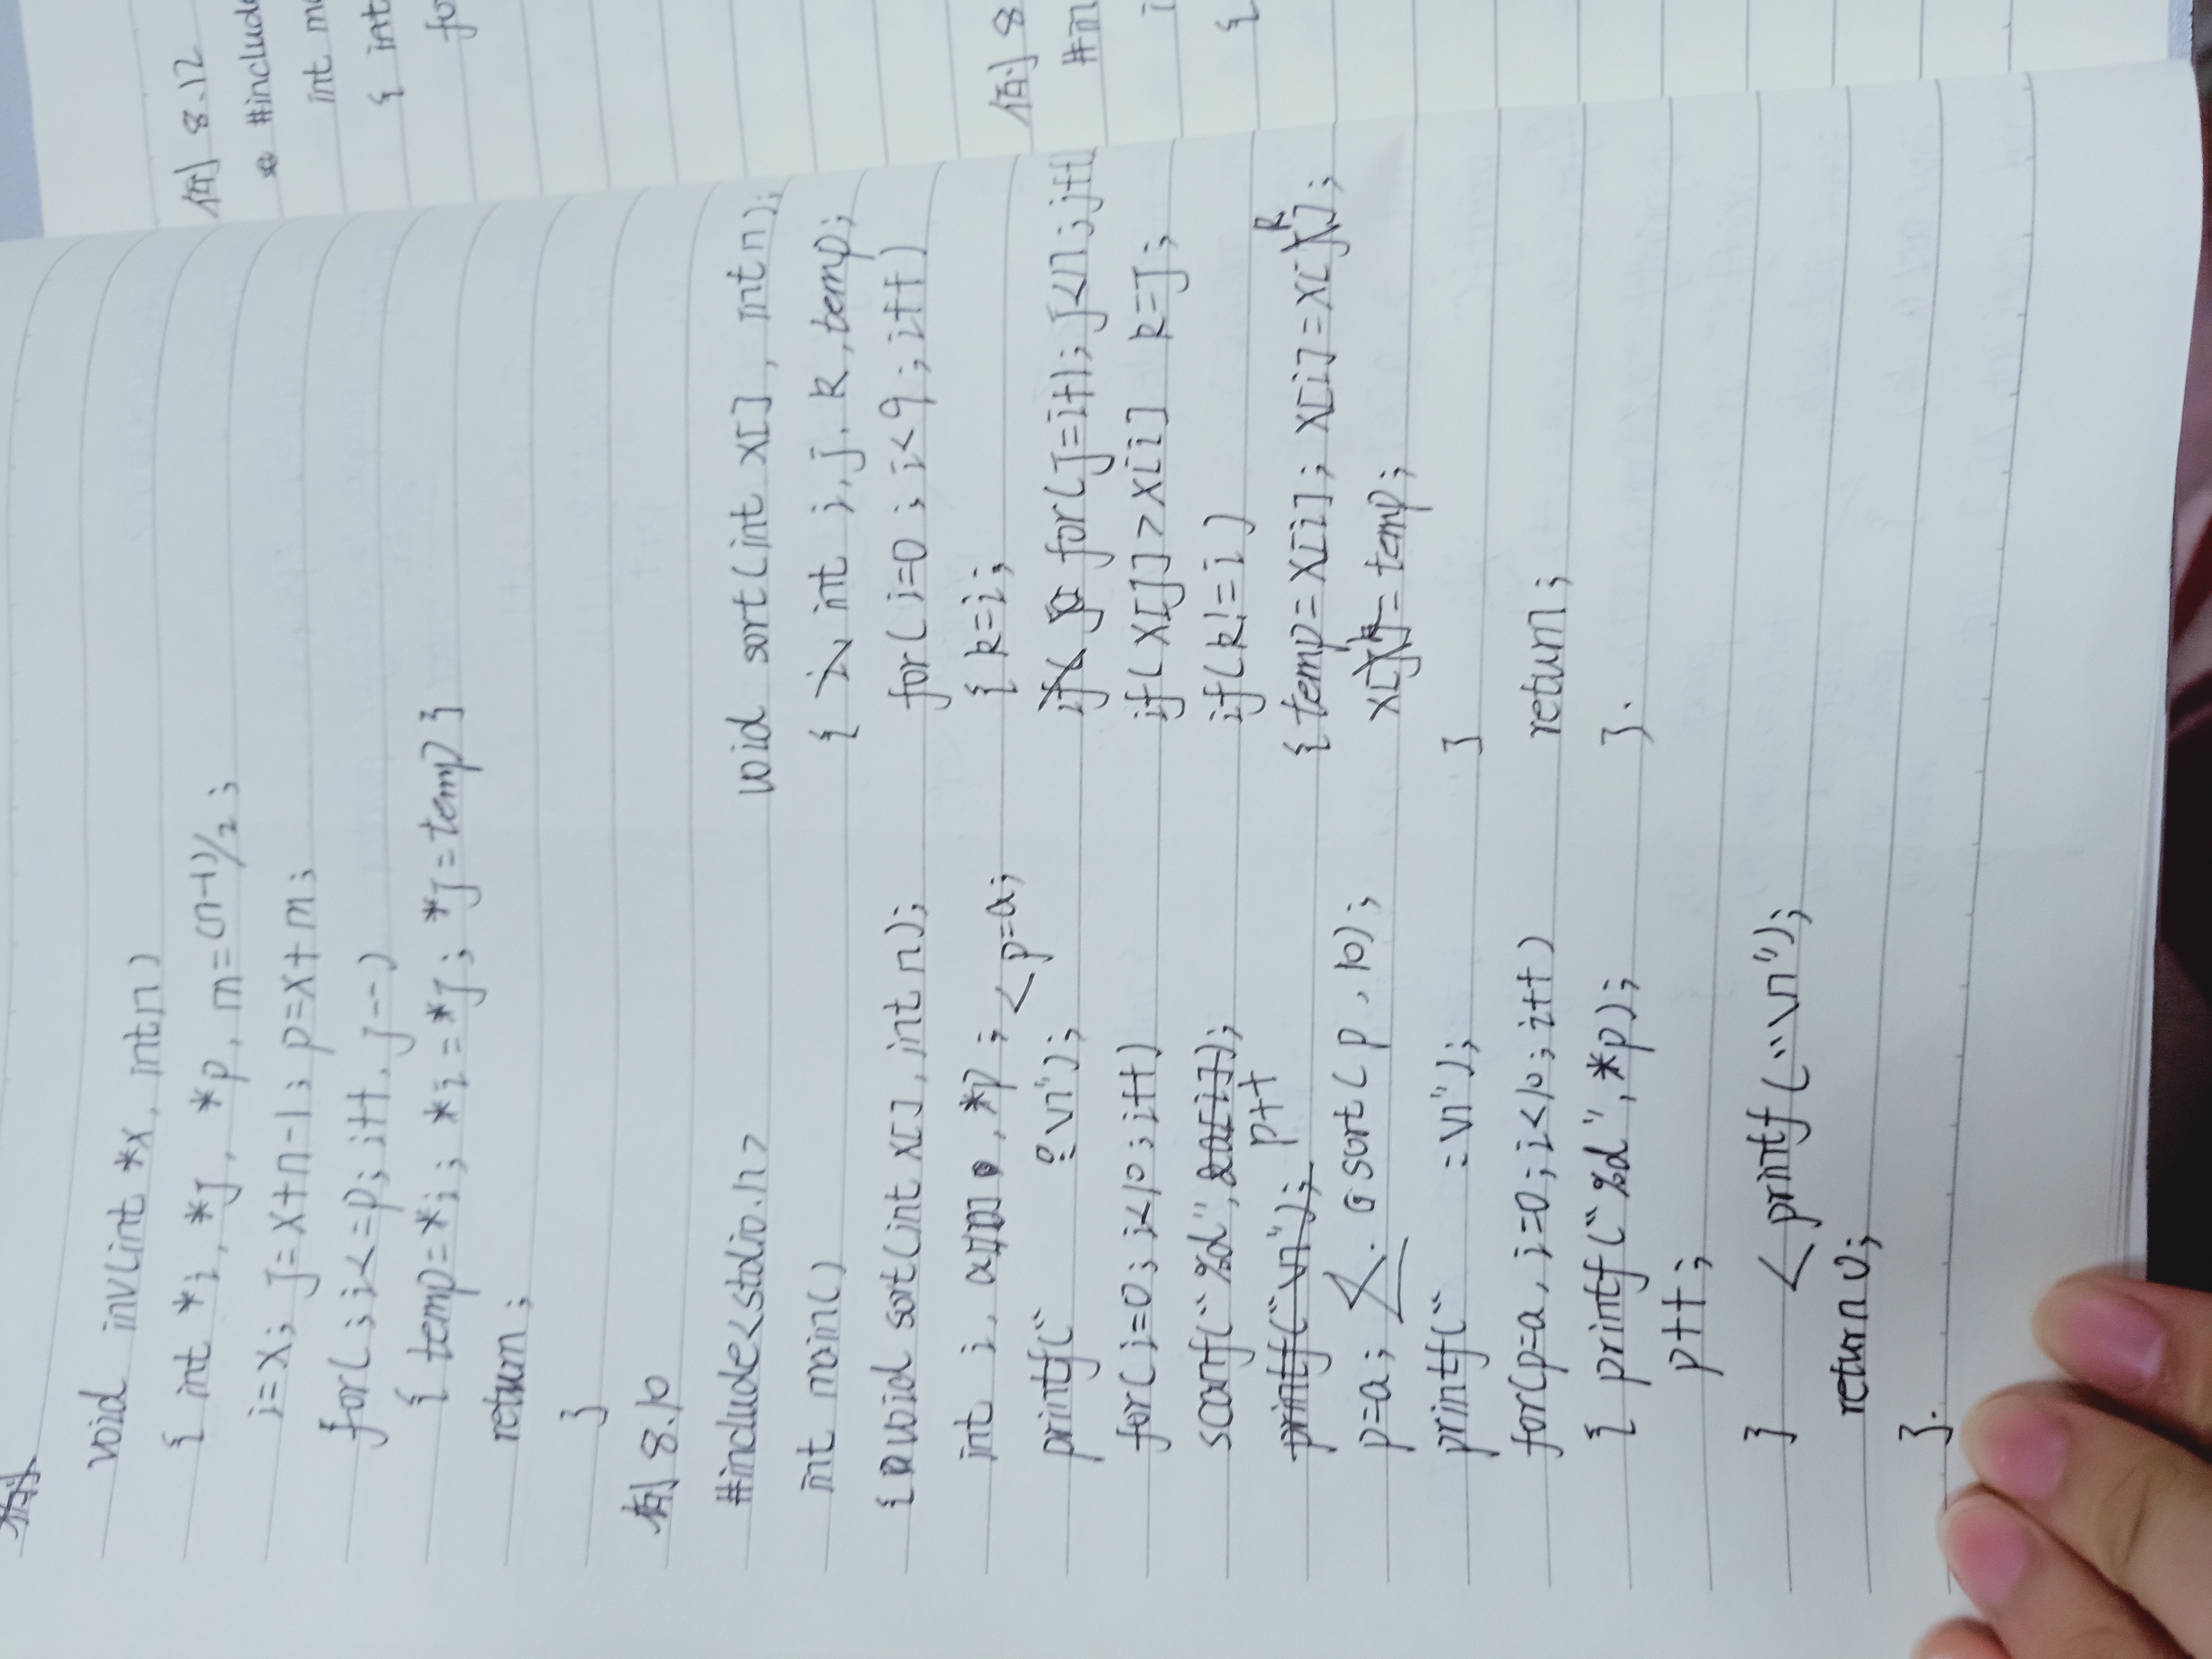 void inv(int *x, int n)
{ int *i, *j, *p, m=(n-1)/2;
i=x; j=x+n-1; p=x+m;
for(; i<=p; i++, j--)
{ temp=*i; *i=*j; *j=temp}
return;
}
例 8.10
#include<stdio.h>
int main()
{ void sort(int x[], int n);
int i, a[10], *p; <p=a;
printf(" :\n");
for(i=0; i<10; i++)
scanf("%d", &a[i]);
p++
printf("\n");
p=a; sort(p, 10);
printf(" :\n");
for(p=a, i=0; i<10; i++)
{ printf("%d", *p);
p++;
} < printf("\n");
return 0;
}.
void sort(int x[], int n);
{ int i, j, k, temp;
for(i=0; i<9; i++)
{ k=i;
if( for(j=i+1; j<n; j++
if(x[j]>x[i] k=j;
if(k!=i)
{ temp=x[i]; x[i]=x[k];
x[k]=temp;
}
return;
}.
例 8.12
#include
int m
{ int
fo
例 8
#in
i
{